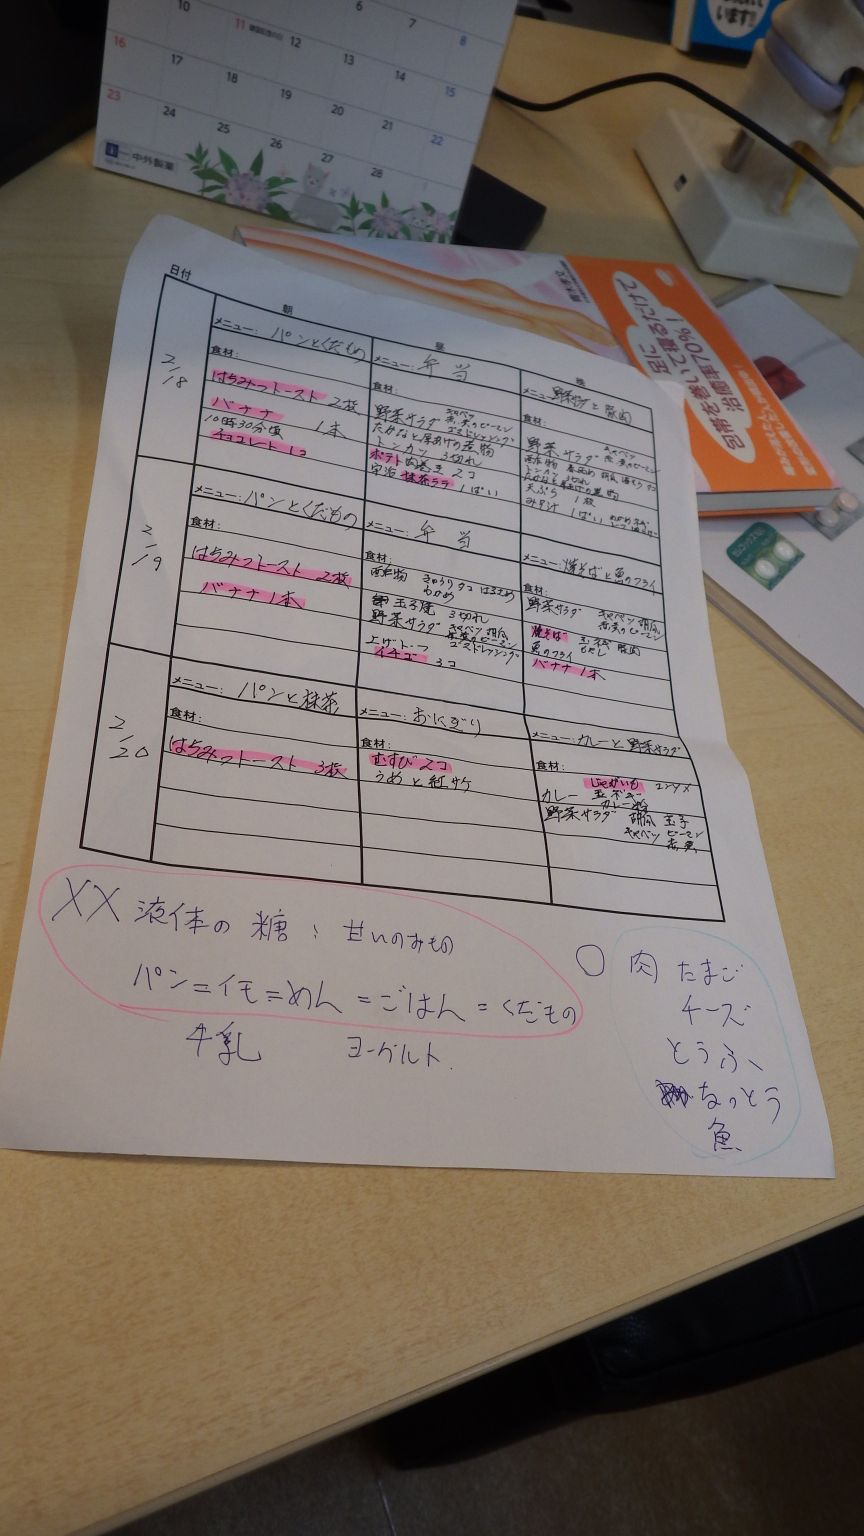 6 7 8
10 11 建国記念の日 12 13 14 15
16 17 18 19 20 21 22
23 24 25 26 27 28 1
中外製薬
います!!
足に
包帯を巻いて寝るだけで
治癒率70%!
日付
朝 昼 晩
2/18
メニュー: パンとくだもの
食材:
はちみつトースト 2枚
バナナ 1本
10時30分頃
チョコレート 1コ
メニュー: 弁当
食材:
野菜サラダ キャベツ 赤、黄のピーマン ゴマドレッシング
たかなと厚あげの煮物
トンカツ 3切れ
ポテト肉巻き 2コ
宇治抹茶ラテ 1ぱい
メニュー: 野菜サラダと豚肉
食材:
野菜サラダ キャベツ 赤、黄のピーマン
酢の物
トンカツ 3切れ
天ぷら 1枚
みそ汁 1ぱい
2/19
メニュー: パンとくだもの
食材:
はちみつトースト 2枚
バナナ 1本
メニュー: 弁当
食材:
酢の物 きゅうり タコ はるさめ わかめ
玉子焼 3切れ
野菜サラダ キャベツ 胡瓜 赤、黄のピーマン ゴマドレッシング
イチゴ 3コ
メニュー: 焼そばと魚のフライ
食材:
野菜サラダ キャベツ 胡瓜 赤、黄のピーマン
焼そば 玉ネギ 豚肉 もやし
魚のフライ
バナナ 1本
2/20
メニュー: パンと抹茶
食材:
はちみつトースト 3枚
メニュー: おにぎり
食材:
むすび 2コ
うめと紅サケ
メニュー: カレーと野菜サラダ
食材:
じゃがいも
カレー 玉ネギ カレー粉
野菜サラダ 胡瓜 玉子
キャベツ ピーマン
赤、黄
XX 液体の糖: 甘いのみもの
パン=イモ=めん=ごはん=くだもの
牛乳 ヨーグルト.
〇 肉 たまご
チーズ
とうふ、
なっとう
魚